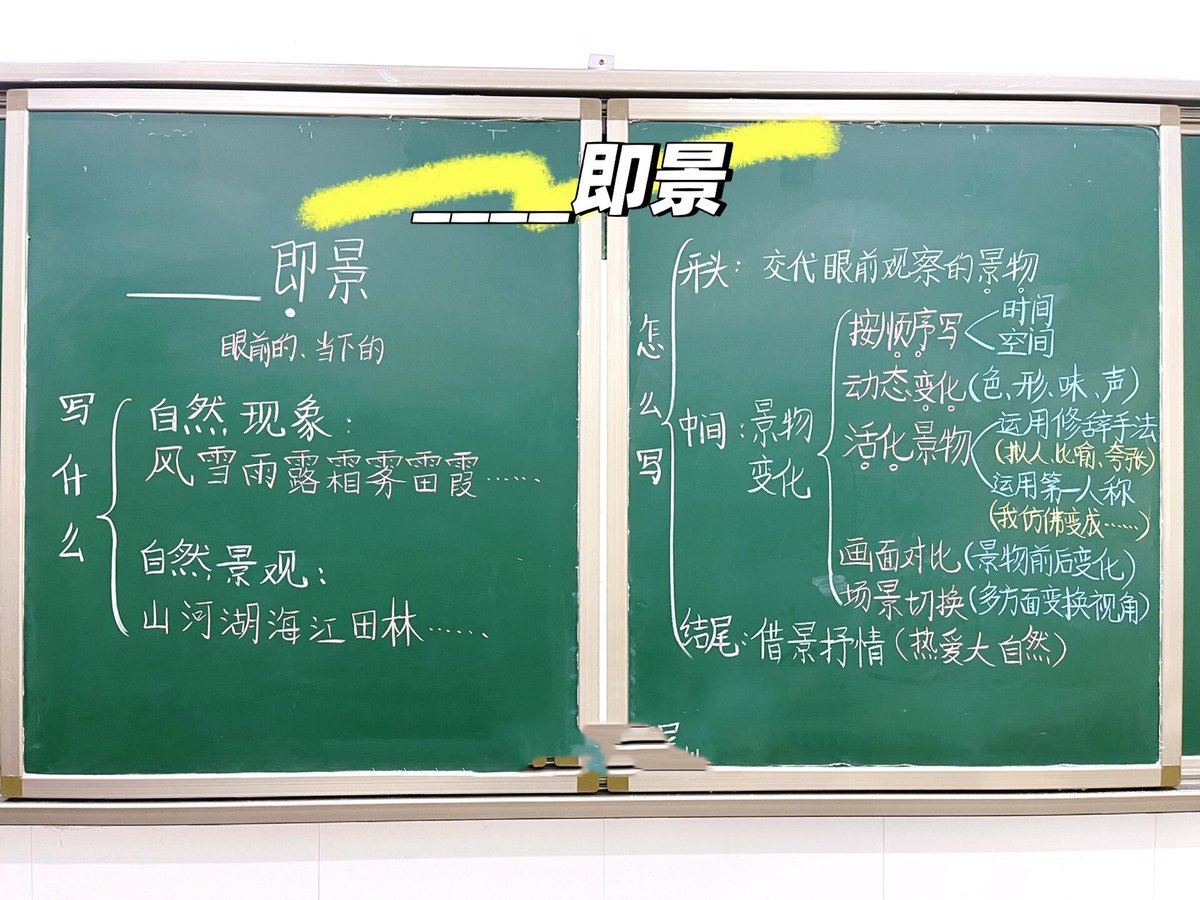 ____即景
____即景
眼前的、当下的
写什么
自然现象：
风雪雨露霜雾雷霞……
自然景观：
山河湖海江田林……
怎么写
开头：交代眼前观察的景物
中间：景物变化
按顺序写
时间
空间
动态变化(色、形、味、声)
活化景物
运用修辞手法
(拟人、比喻、夸张)
运用第一人称
(我仿佛变成……)
画面对比(景物前后变化)
场景切换(多方面变换视角)
结尾：借景抒情(热爱大自然)